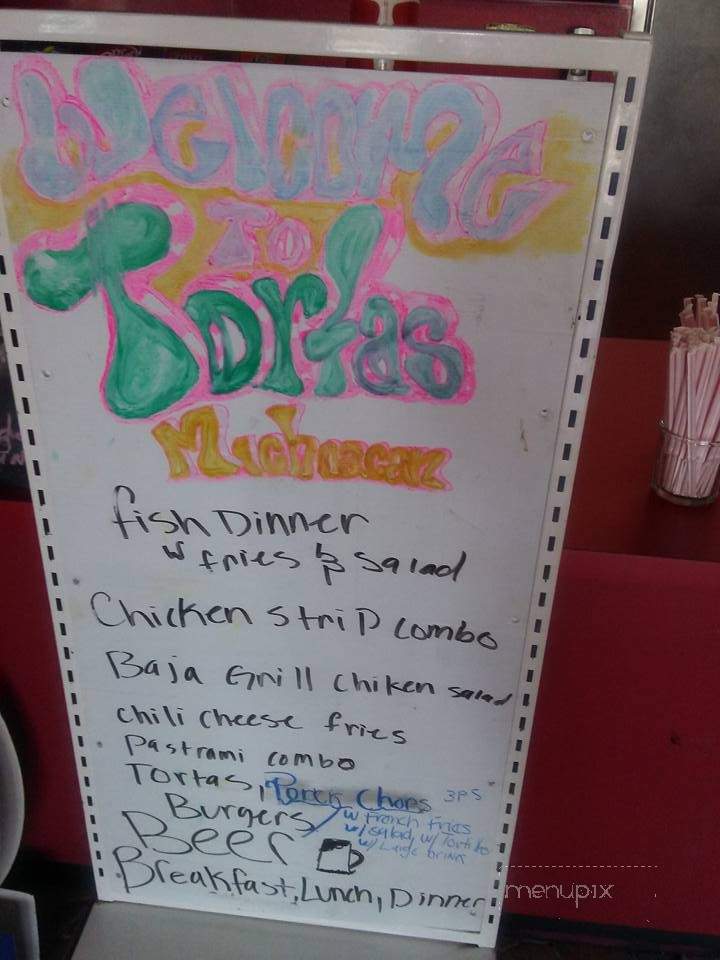 Welcome
To
Tortas
Michoacan
fish Dinner
w fries & salad
Chicken strip combo
Baja Grill chiken salad
chili cheese fries
Pastrami combo
Tortas, Porck Chops 3ps
Burgers w French fries
w/ salad, w/ Tortillas
w/ Large Drink
Beer
Breakfast, Lunch, Dinner
menupix